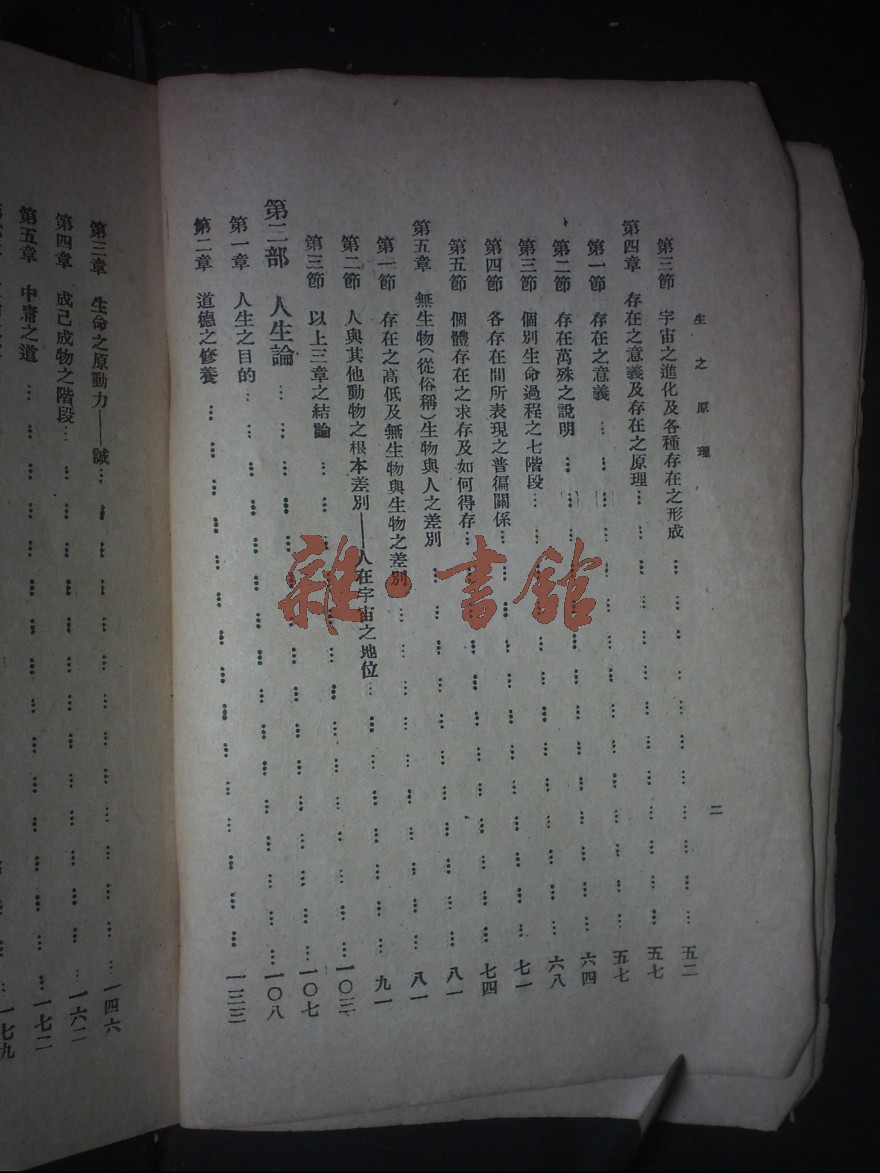 生之原理
二
第三節 宇宙之進化及各種存在之形成……五二
第四章 存在之意義及存在之原理……五七
第一節 存在之意義……五七
第二節 存在萬殊之說明……六四
第三節 個別生命過程之七階段……六八
第四節 各存在間所表現之普徧關係……七一
第五節 個體存在之求存及如何得存……七四
第五章 無生物(從俗稱)生物與人之差別……八一
第一節 存在之高低及無生物與生物之差別……八一
第二節 人與其他動物之根本差別——人在宇宙之地位……九一
第三節 以上三章之結論……一〇三
第二部 人生論……一〇七
第一章 人生之目的……一〇八
第二章 道德之修養……一三三
第三章 生命之原動力——誠……一四六
第四章 成己成物之階段……一六二
第五章 中庸之道……一七二
一七九
雜·書館